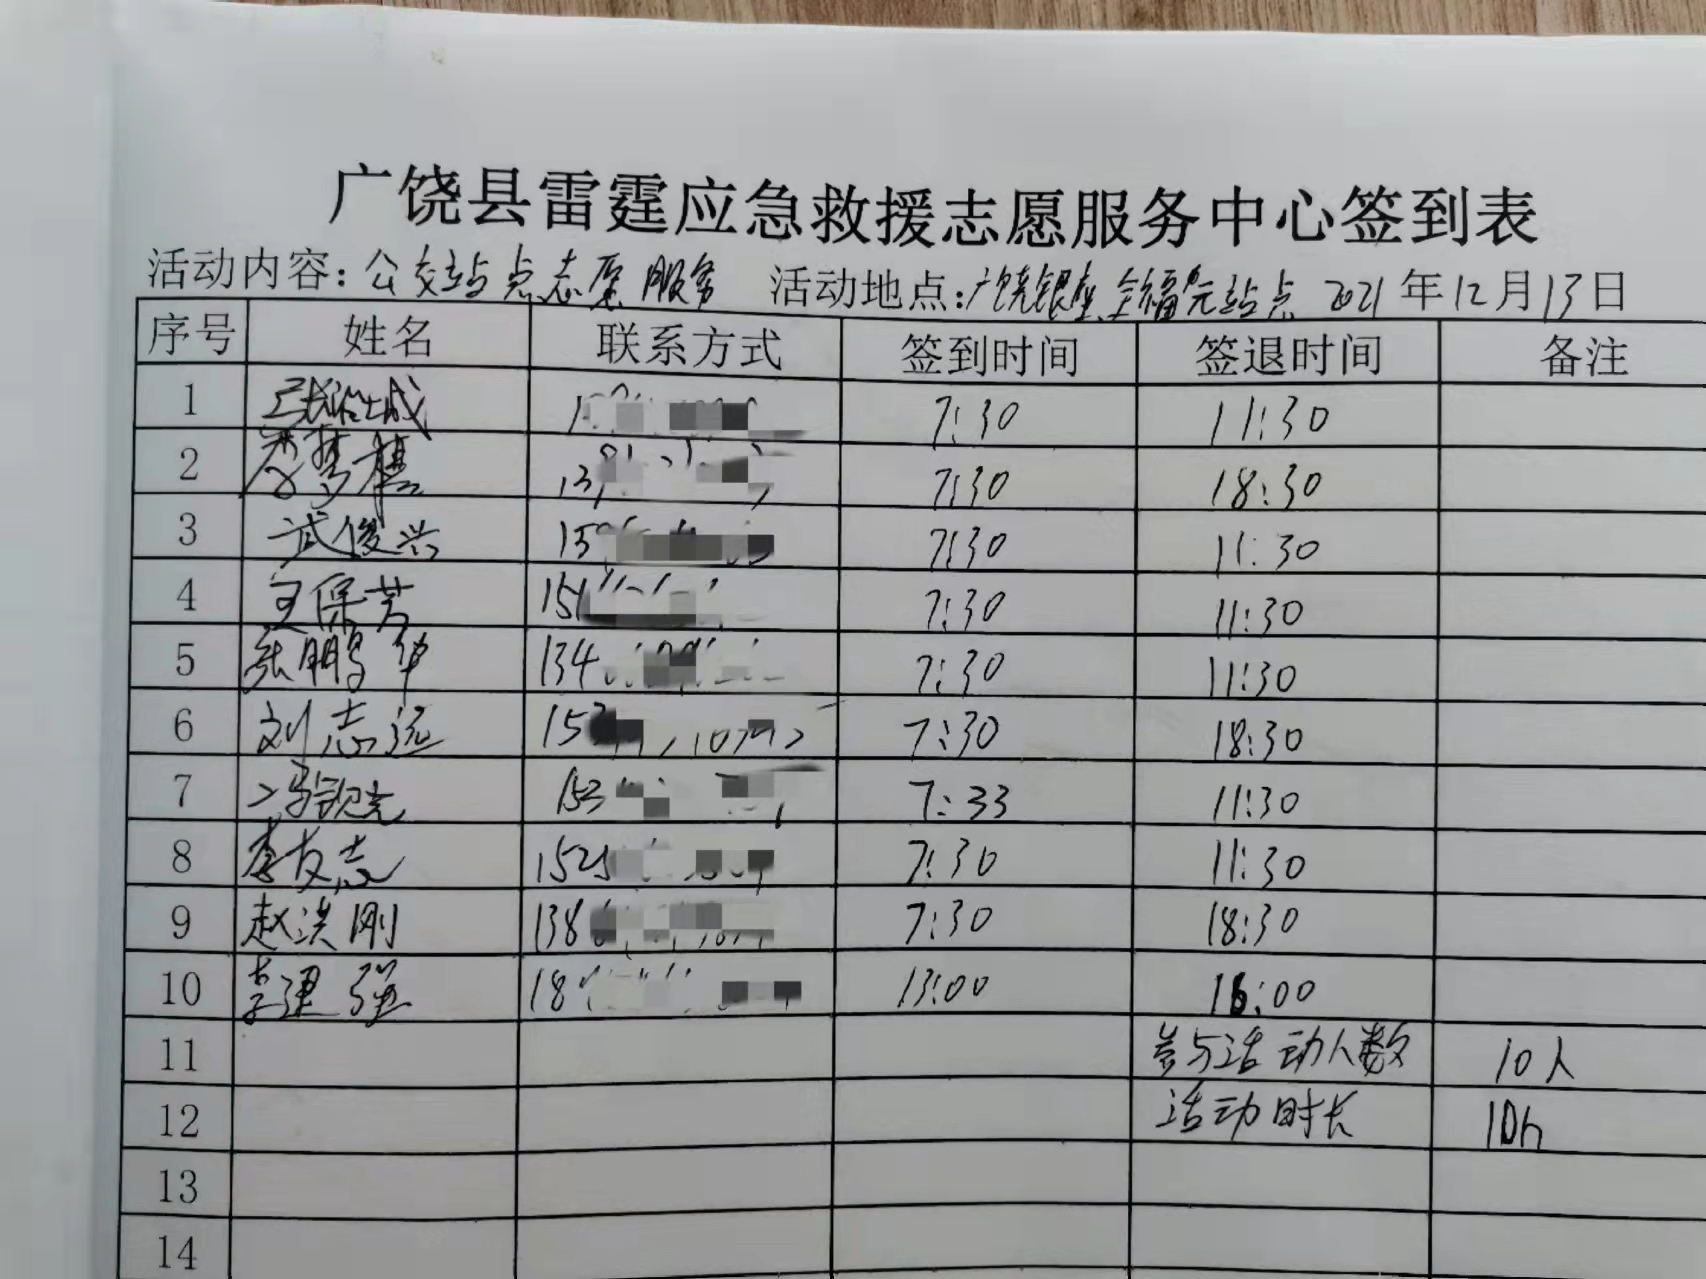 广饶县雷霆应急救援志愿服务中心签到表
活动内容：公交站点志愿服务 活动地点：广饶银座、全福元站点 2021年12月13日
序号 姓名 联系方式 签到时间 签退时间 备注
1 7:30 11:30
2 7:30 18:30
3 武俊兴 7:30 11:30
4 王保芳 151 7:30 11:30
5 张鹏华 134 7:30 11:30
6 刘志远 15 7:30 18:30
7 153 7:33 11:30
8 李友志 152 7:30 11:30
9 赵洪刚 138 7:30 18:30
10 李建强 18 13:00 16:00
11 参与活动人数 10人
12 活动时长 10h
13
14